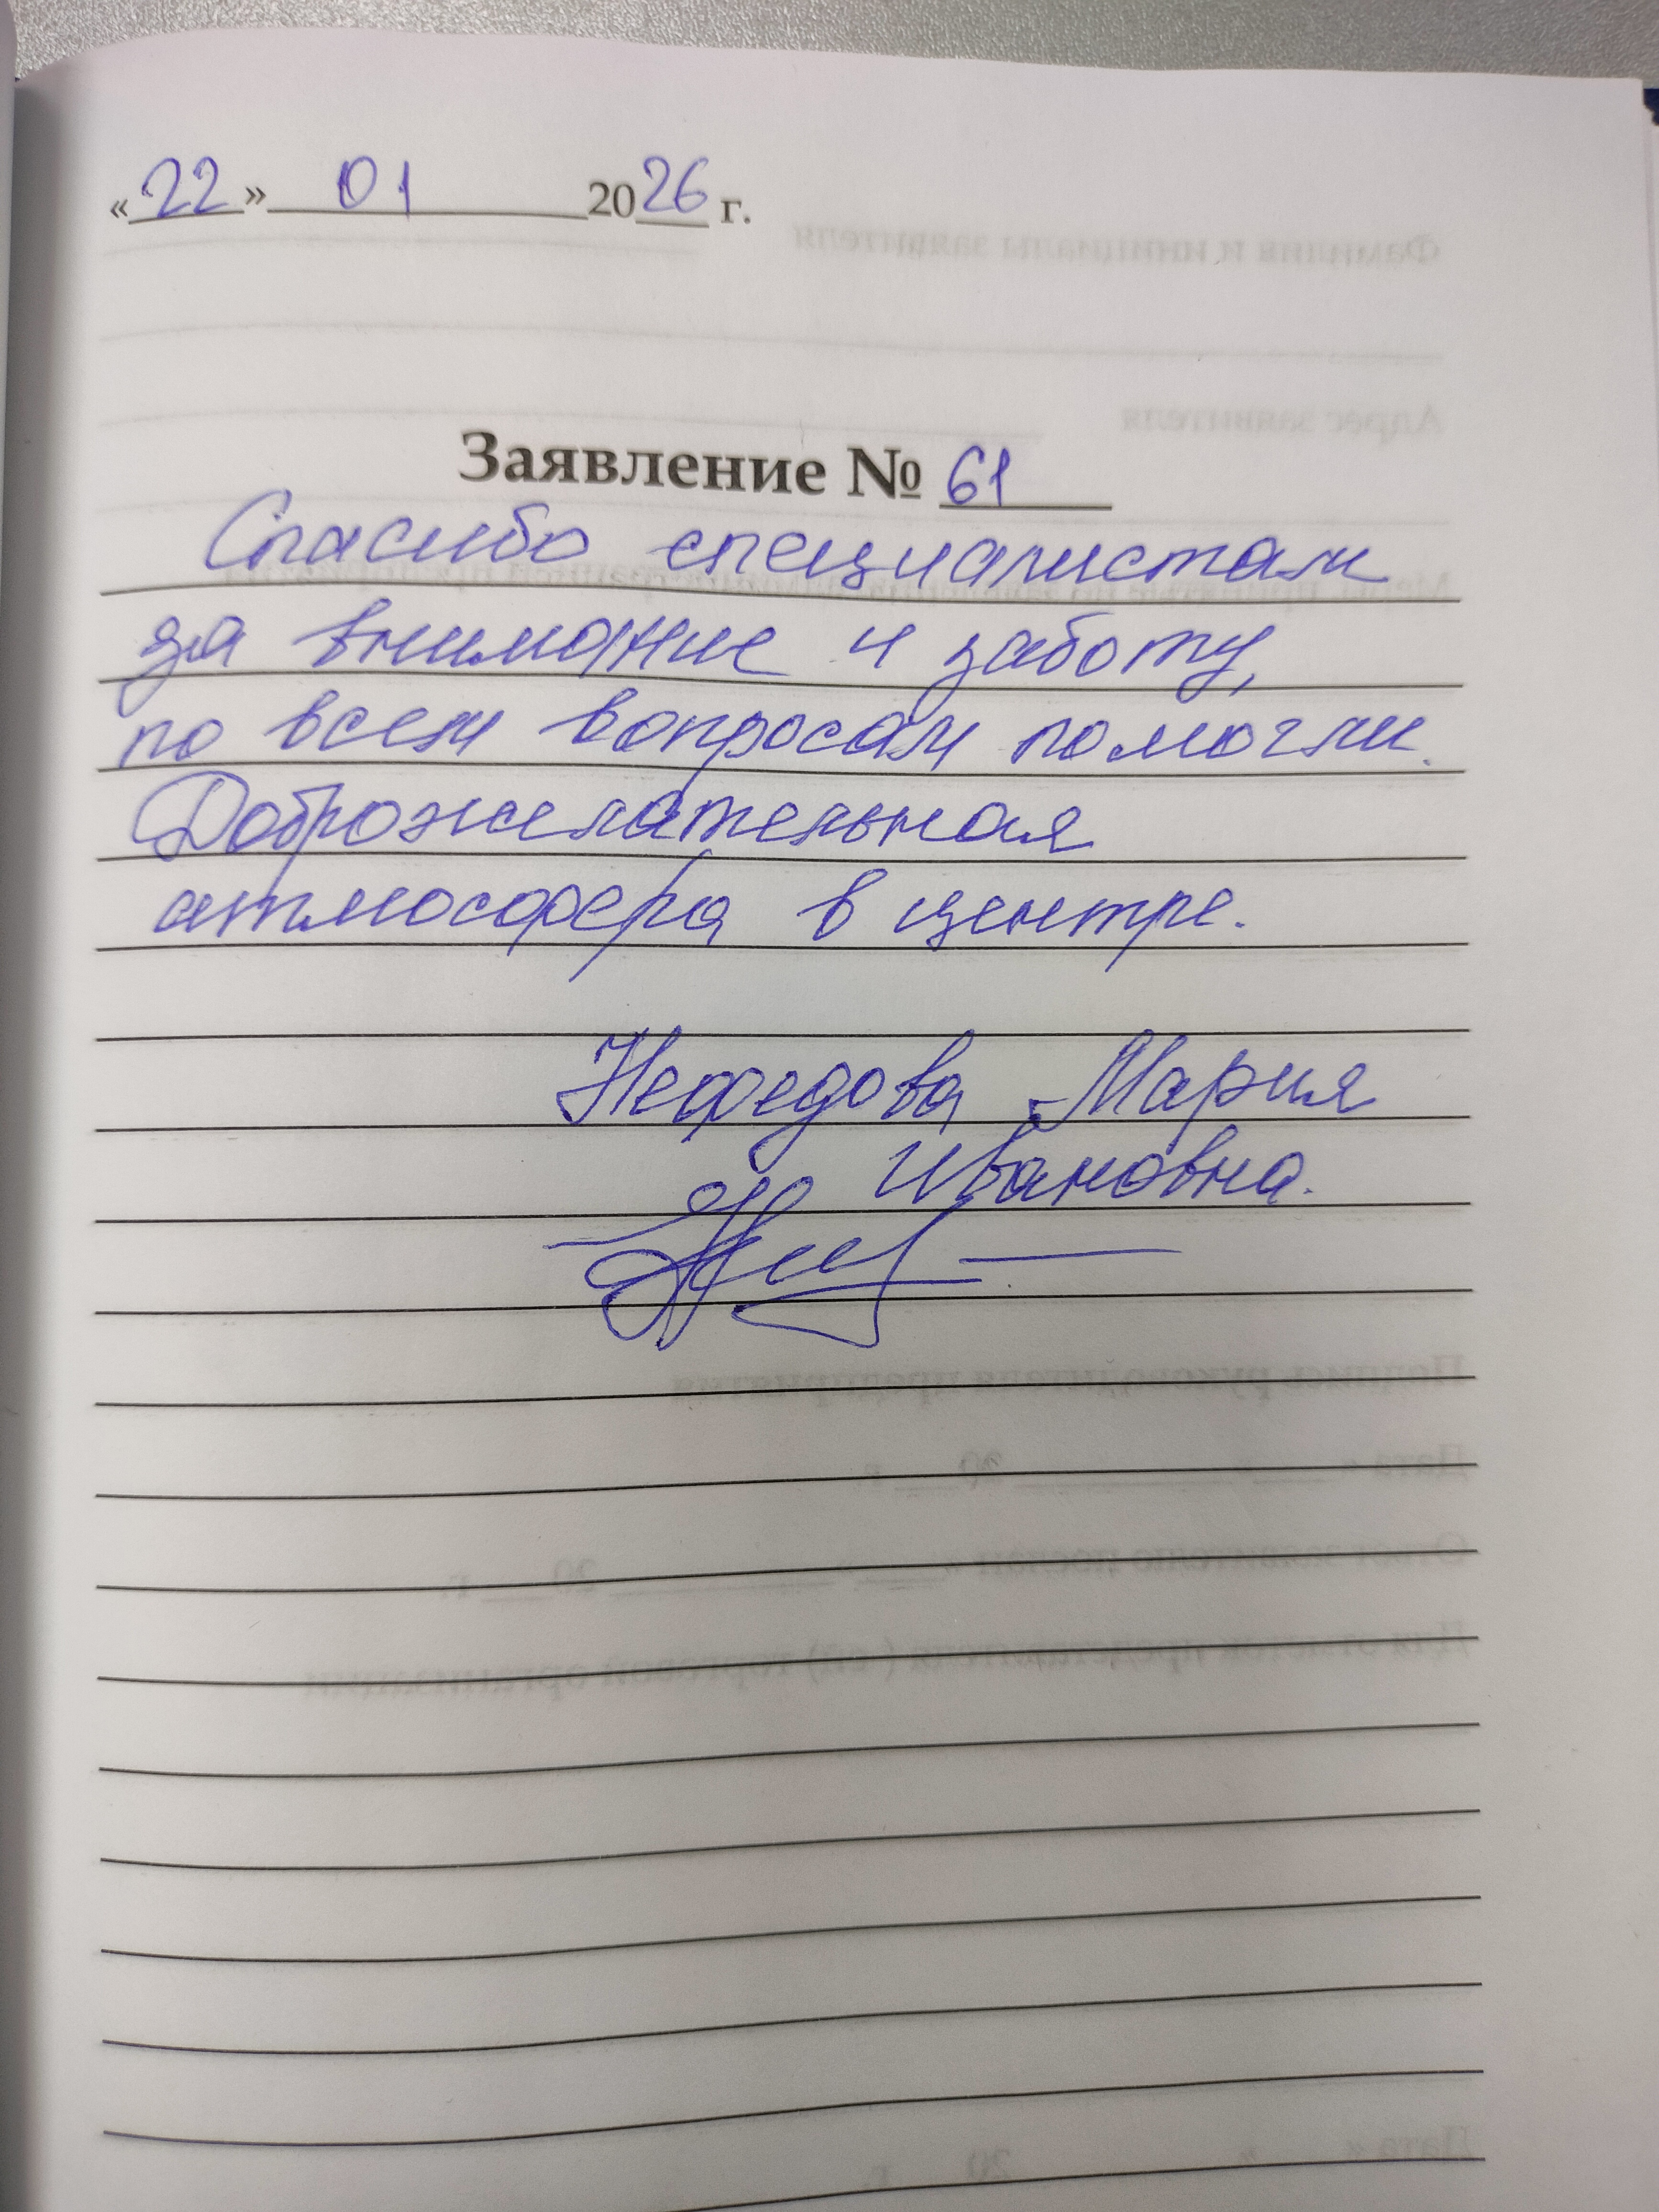 «22» 01 2026 г.
Заявление № 61
Спасибо специалистам
за внимание и заботу,
по всем вопросам помогли.
Доброжелательная
атмосфера в центре.
Нефедова Мария
Ивановна.